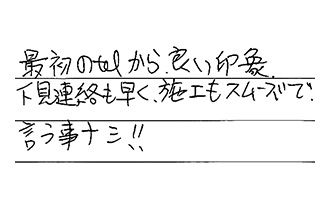 最初のtelから良い印象.
下見連絡も早く、施工もスムーズで.
言う事ナシ!!